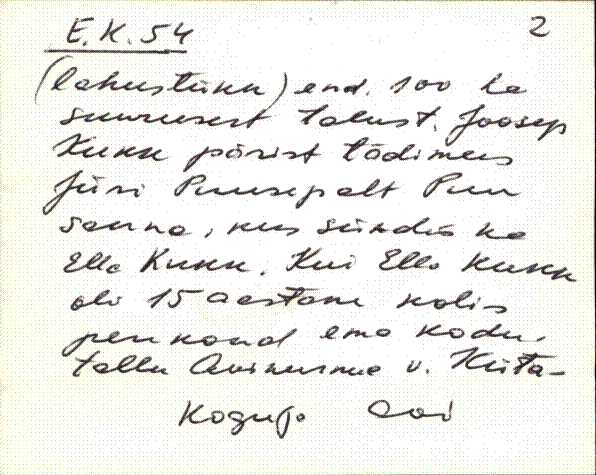 E.K. 54
2
(lahustükk) end. 100 ha
suurusest talust. Joosep
Kukk päris tädimees
Jüri Puusepalt Puu
sauna, kus sündis ka
Ella Kukk. Kui Ella Kukk
oli 15 aastane kolis
perekond ema kodu-
tallu Avinurme v. Kiita-
Koguja